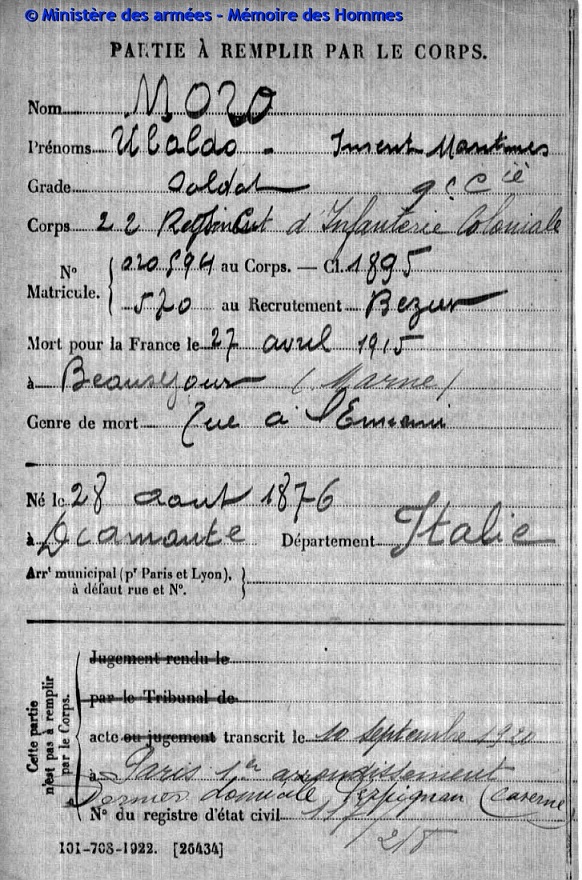 © Ministère des armées - Mémoire des Hommes
PARTIE À REMPLIR PAR LE CORPS.
Nom Mozo
Prénoms Ubaldo - Inscrit Maritimes
Grade Soldat 9e Cie
Corps 22 Régiment d'Infanterie Coloniale
N° Matricule. 020594 au Corps. — Cl. 1895
570 au Recrutement Bezier
Mort pour la France le 27 avril 1915
à Beausejour (Marne)
Genre de mort Tué a l'Ennemi
Né le 28 aout 1876
à Diamante Département Italie
Arrt municipal (pr Paris et Lyon),
à défaut rue et N°.
Cette partie n'est pas à remplir par le Corps.
Jugement rendu le
par le Tribunal de
acte ou jugement transcrit le 10 septembre 1920
à Paris 1er arrondissement
Dernier domicile Perpignan (caserne)
N° du registre d'état civil 117/
218
101-708-1922. [26434]